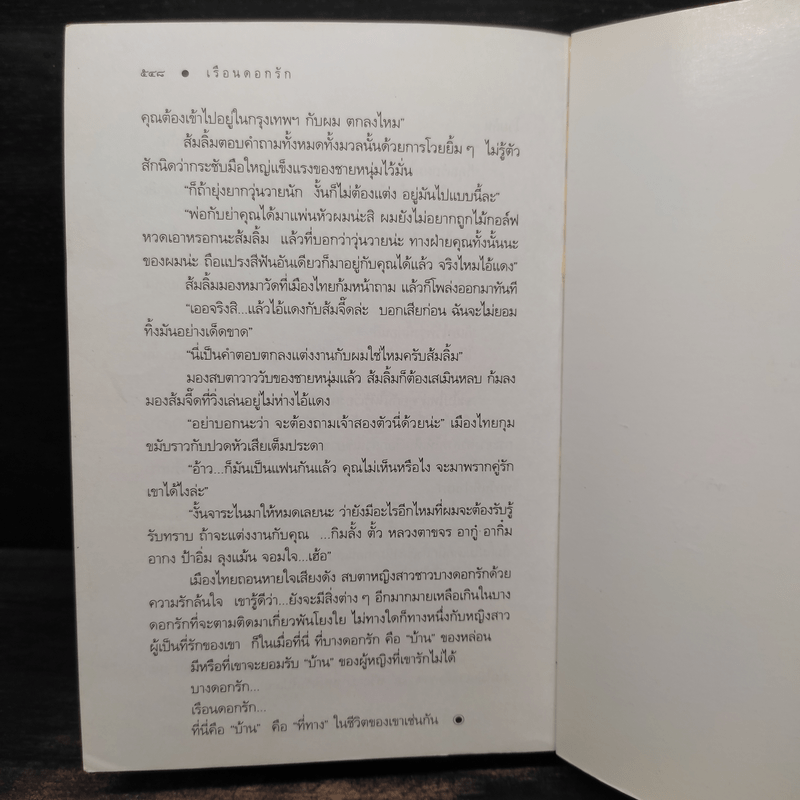 ๕๔๘ ● เรือนดอกรัก
คุณต้องเข้าไปอยู่ในกรุงเทพฯ กับผม ตกลงไหม”
ส้มลิ้มตอบคำถามทั้งหมดทั้งมวลนั้นด้วยการโวยยิ้ม ๆ ไม่รู้ตัว
สักนิดว่ากระชับมือใหญ่แข็งแรงของชายหนุ่มไว้มั่น
“ก็ถ้ายุ่งยากวุ่นวายนัก งั้นก็ไม่ต้องแต่ง อยู่มันไปแบบนี้ละ”
“พ่อกับย่าคุณได้มาแพ่นหัวผมน่ะสิ ผมยังไม่อยากถูกไม้กอล์ฟ
หวดเอาหรอกนะส้มลิ้ม แล้วที่บอกว่าวุ่นวายน่ะ ทางฝ่ายคุณทั้งนั้นนะ
ของผมน่ะ ถือแปรงสีฟันอันเดียวก็มาอยู่กับคุณได้แล้ว จริงไหมไอ้แดง”
ส้มลิ้มมองหมาวัดที่เมืองไทยก้มหน้าถาม แล้วก็โพล่งออกมาทันที
“เออจริงสิ...แล้วไอ้แดงกับส้มจี๊ดล่ะ บอกเสียก่อน ฉันจะไม่ยอม
ทิ้งมันอย่างเด็ดขาด”
“นี่เป็นคำตอบตกลงแต่งงานกับผมใช่ไหมครับส้มลิ้ม”
มองสบตาวาววับของชายหนุ่มแล้ว ส้มลิ้มก็ต้องเสเมินหลบ ก้มลง
มองส้มจี๊ดที่วิ่งเล่นอยู่ไม่ห่างไอ้แดง
“อย่าบอกนะว่า จะต้องถามเจ้าสองตัวนี่ด้วยน่ะ” เมืองไทยกุม
ขมับราวกับปวดหัวเสียเต็มประดา
“อ้าว...ก็มันเป็นแฟนกันแล้ว คุณไม่เห็นหรือไง จะมาพรากคู่รัก
เขาได้ไงล่ะ”
“งั้นจาระไนมาให้หมดเลยนะ ว่ายังมีอะไรอีกไหมที่ผมจะต้องรับรู้
รับทราบ ถ้าจะแต่งงานกับคุณ ...กิมลั้ง ตั้ว หลวงตาขจร อากู๋ อากิ๋ม
อากง ป้าอิ่ม ลุงแม้น จอมใจ...เฮ้อ”
เมืองไทยถอนหายใจเสียงดัง สบตาหญิงสาวชาวบางดอกรักด้วย
ความรักล้นใจ เขารู้ดีว่า...ยังจะมีสิ่งต่าง ๆ อีกมากมายเหลือเกินในบาง
ดอกรักที่จะตามติดมาเกี่ยวพันโยงใย ไม่ทางใดก็ทางหนึ่งกับหญิงสาว
ผู้เป็นที่รักของเขา ก็ในเมื่อที่นี่ ที่บางดอกรัก คือ “บ้าน” ของหล่อน
มีหรือที่เขาจะยอมรับ “บ้าน” ของผู้หญิงที่เขารักไม่ได้
บางดอกรัก...
เรือนดอกรัก...
ที่นี่คือ “บ้าน” คือ “ที่ทาง” ในชีวิตของเขาเช่นกัน